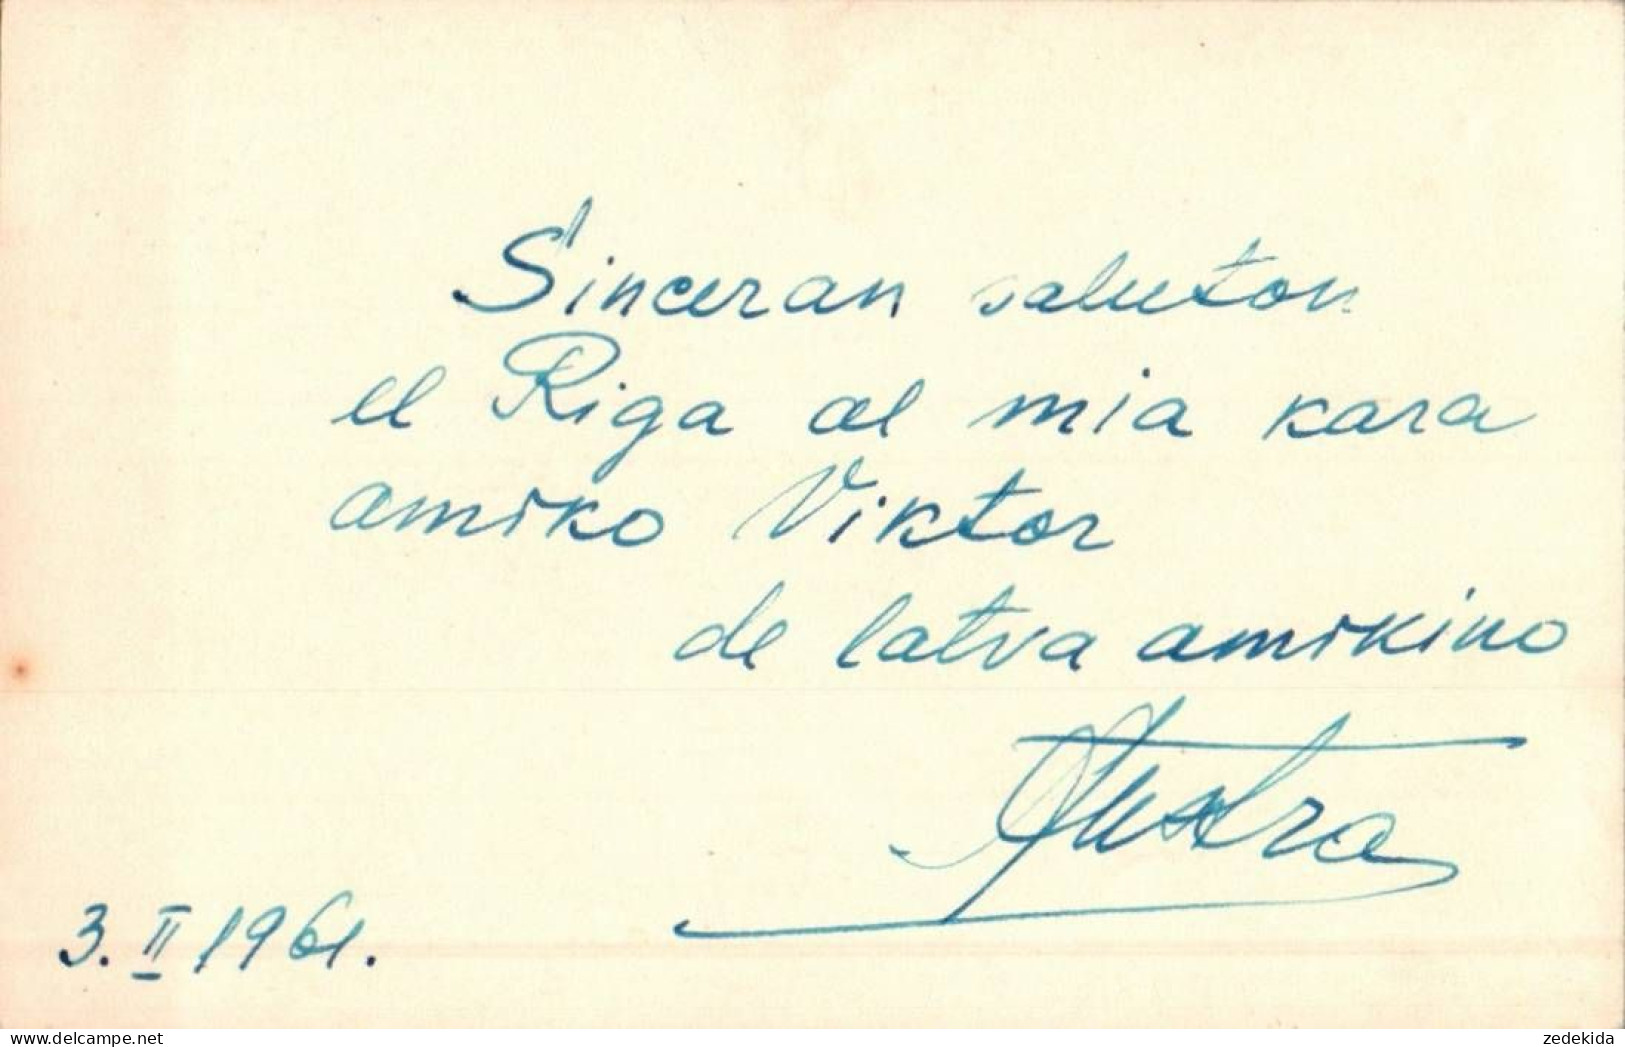 Sinceran saluton
el Riga al mia kara
amiko Viktor
de latva amikino
Austra
3. II 1961.
zedekida